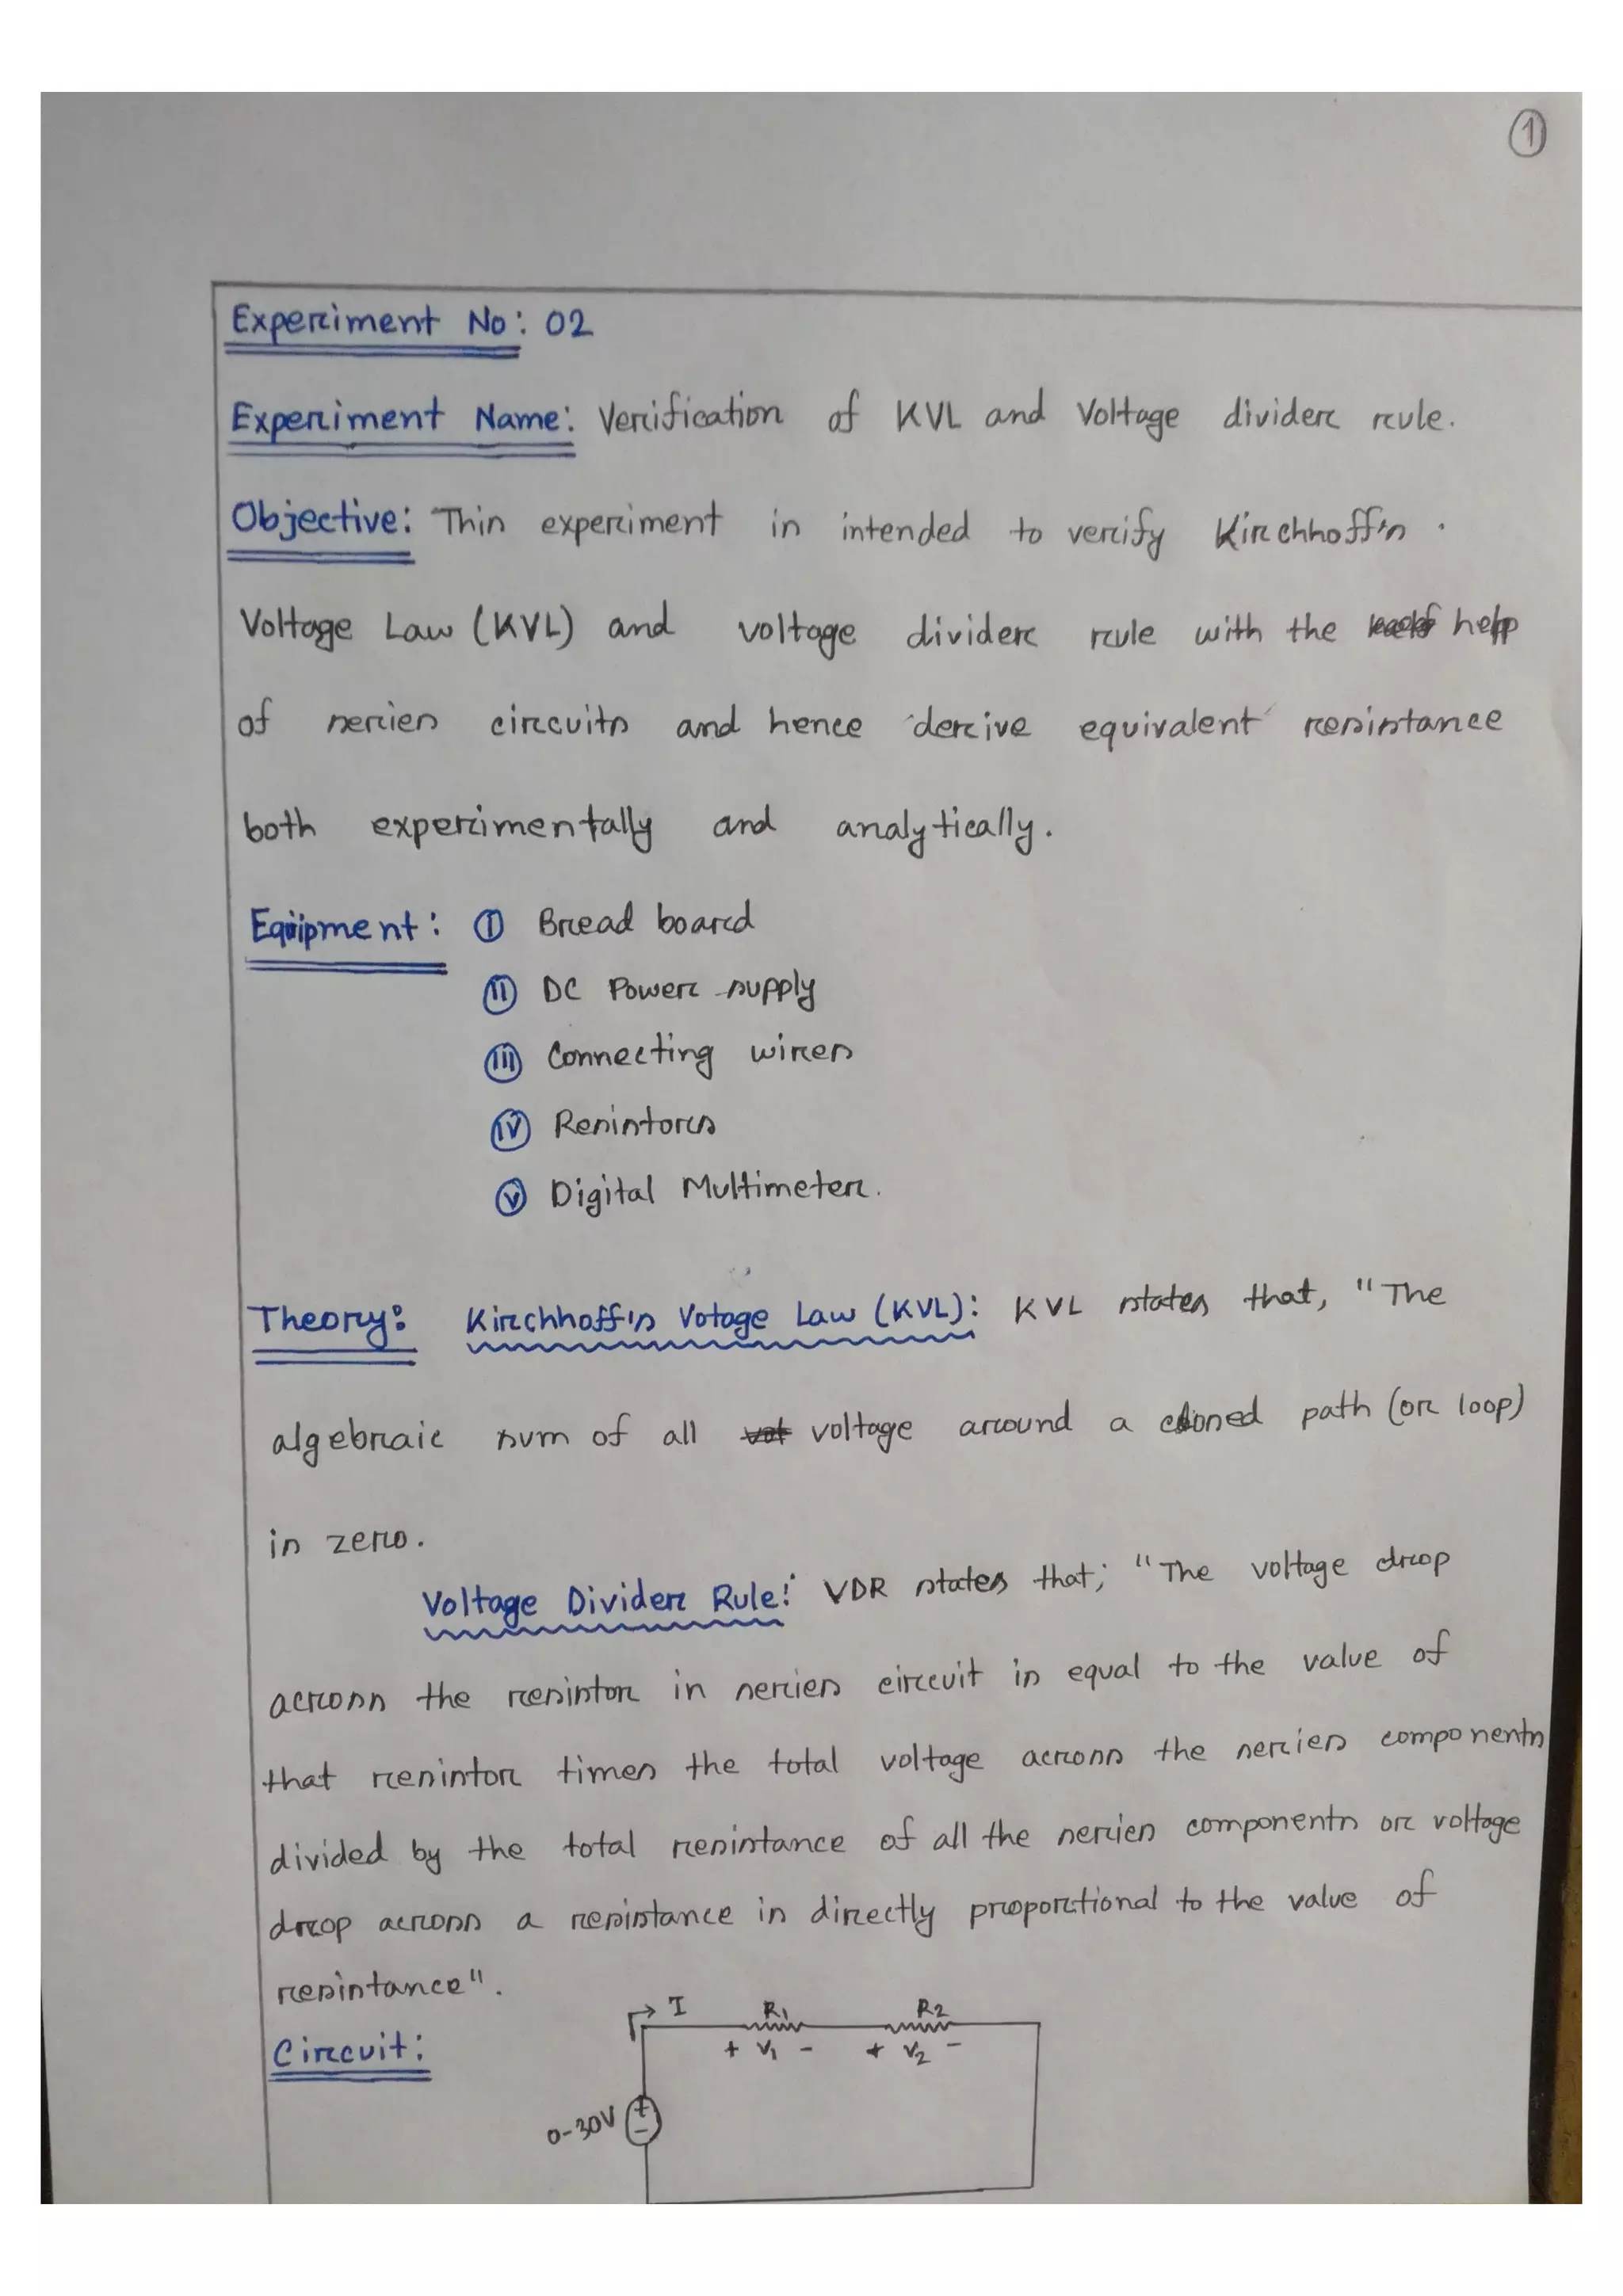 1
Experiment No: 02
Experiment Name: Verification of KVL and Voltage divider rule.
Objective: This experiment is intended to verify Kirchhoff's
Voltage Law (KVL) and voltage divider rule with the help
of series circuits and hence derive equivalent resistance
both experimentally and analytically.
Equipment: (I) Bread board
(II) DC Power supply
(III) Connecting wires
(IV) Resistors
(V) Digital Multimeter.
Theory: Kirchhoff's Votage Law (KVL): KVL states that, "The
algebraic sum of all voltage around a closed path (or loop)
is zero.
Voltage Divider Rule: VDR states that; "The voltage drop
across the resistor in series circuit is equal to the value of
that resistor times the total voltage across the series components
divided by the total resistance of all the series components or voltage
drop across a resistance is directly proportional to the value of
resistance".
Circuit:
I R1 R2
+ V1 - + V2 -
0-30V + -